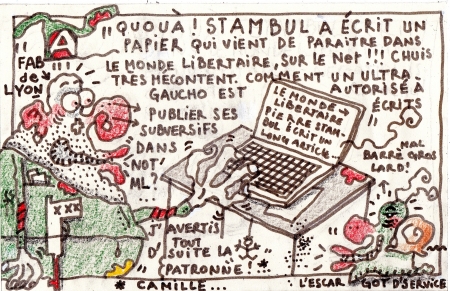 "QUO.UÀ! STAMBUL A ÉCRIT UN
PAPIER QUI VIENT DE PARAÎTRE DANS
LE MONDE LIBERTAIRE, SUR LE NET!!! CHUIS
TRES MECONTENT. COMMENT UN ULTRA.
GAUCHO EST AUTORISÉ À
PUBLIER SES ÉCRITS
SUBVERSIFS
DANS
NOT'
ML?
"FAB"
de
LYON
LE MONDE
LIBERTAIRE
PIERRE STAM-
BUL ÉCRIT UN
LONG ARTICLE
MAL
BARRÉ GROS
LARD!
XXX
J'AVERTIS
TOUT
D'SUITE LA
PATRONNE! *
* CAMILLE...
L'ESCARGOT D'SERVICE